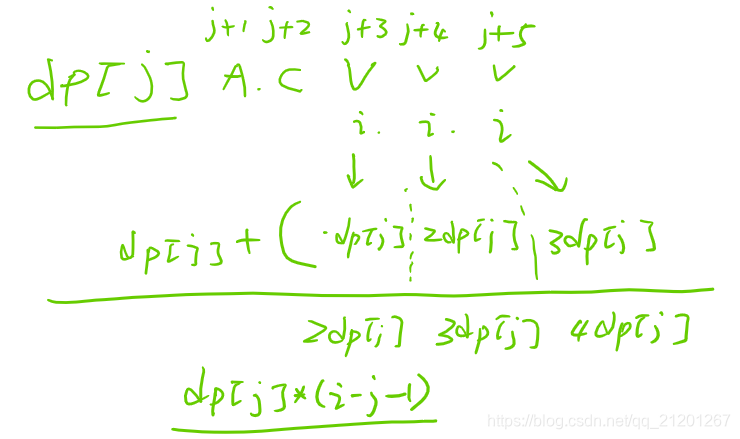 j+1 j+2 j+3 j+4 j+5
dp[j] A.C V v v
i. i. i
dp[j] + ( ·dp[j] 2dp[j] 3dp[j]
2dp[j] 3dp[j] 4dp[j]
dp[j]*(i-j-1)
https://blog.csdn.net/qq_21201267